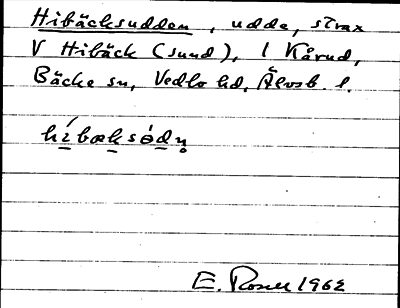 Hibäcksudden, udde, strax
V Hibäck (sund), l Kårud,
Bäcke sn, Vedbo hd, Älvsb. l.
híbæksǿdn̥
E. Rosell 1962